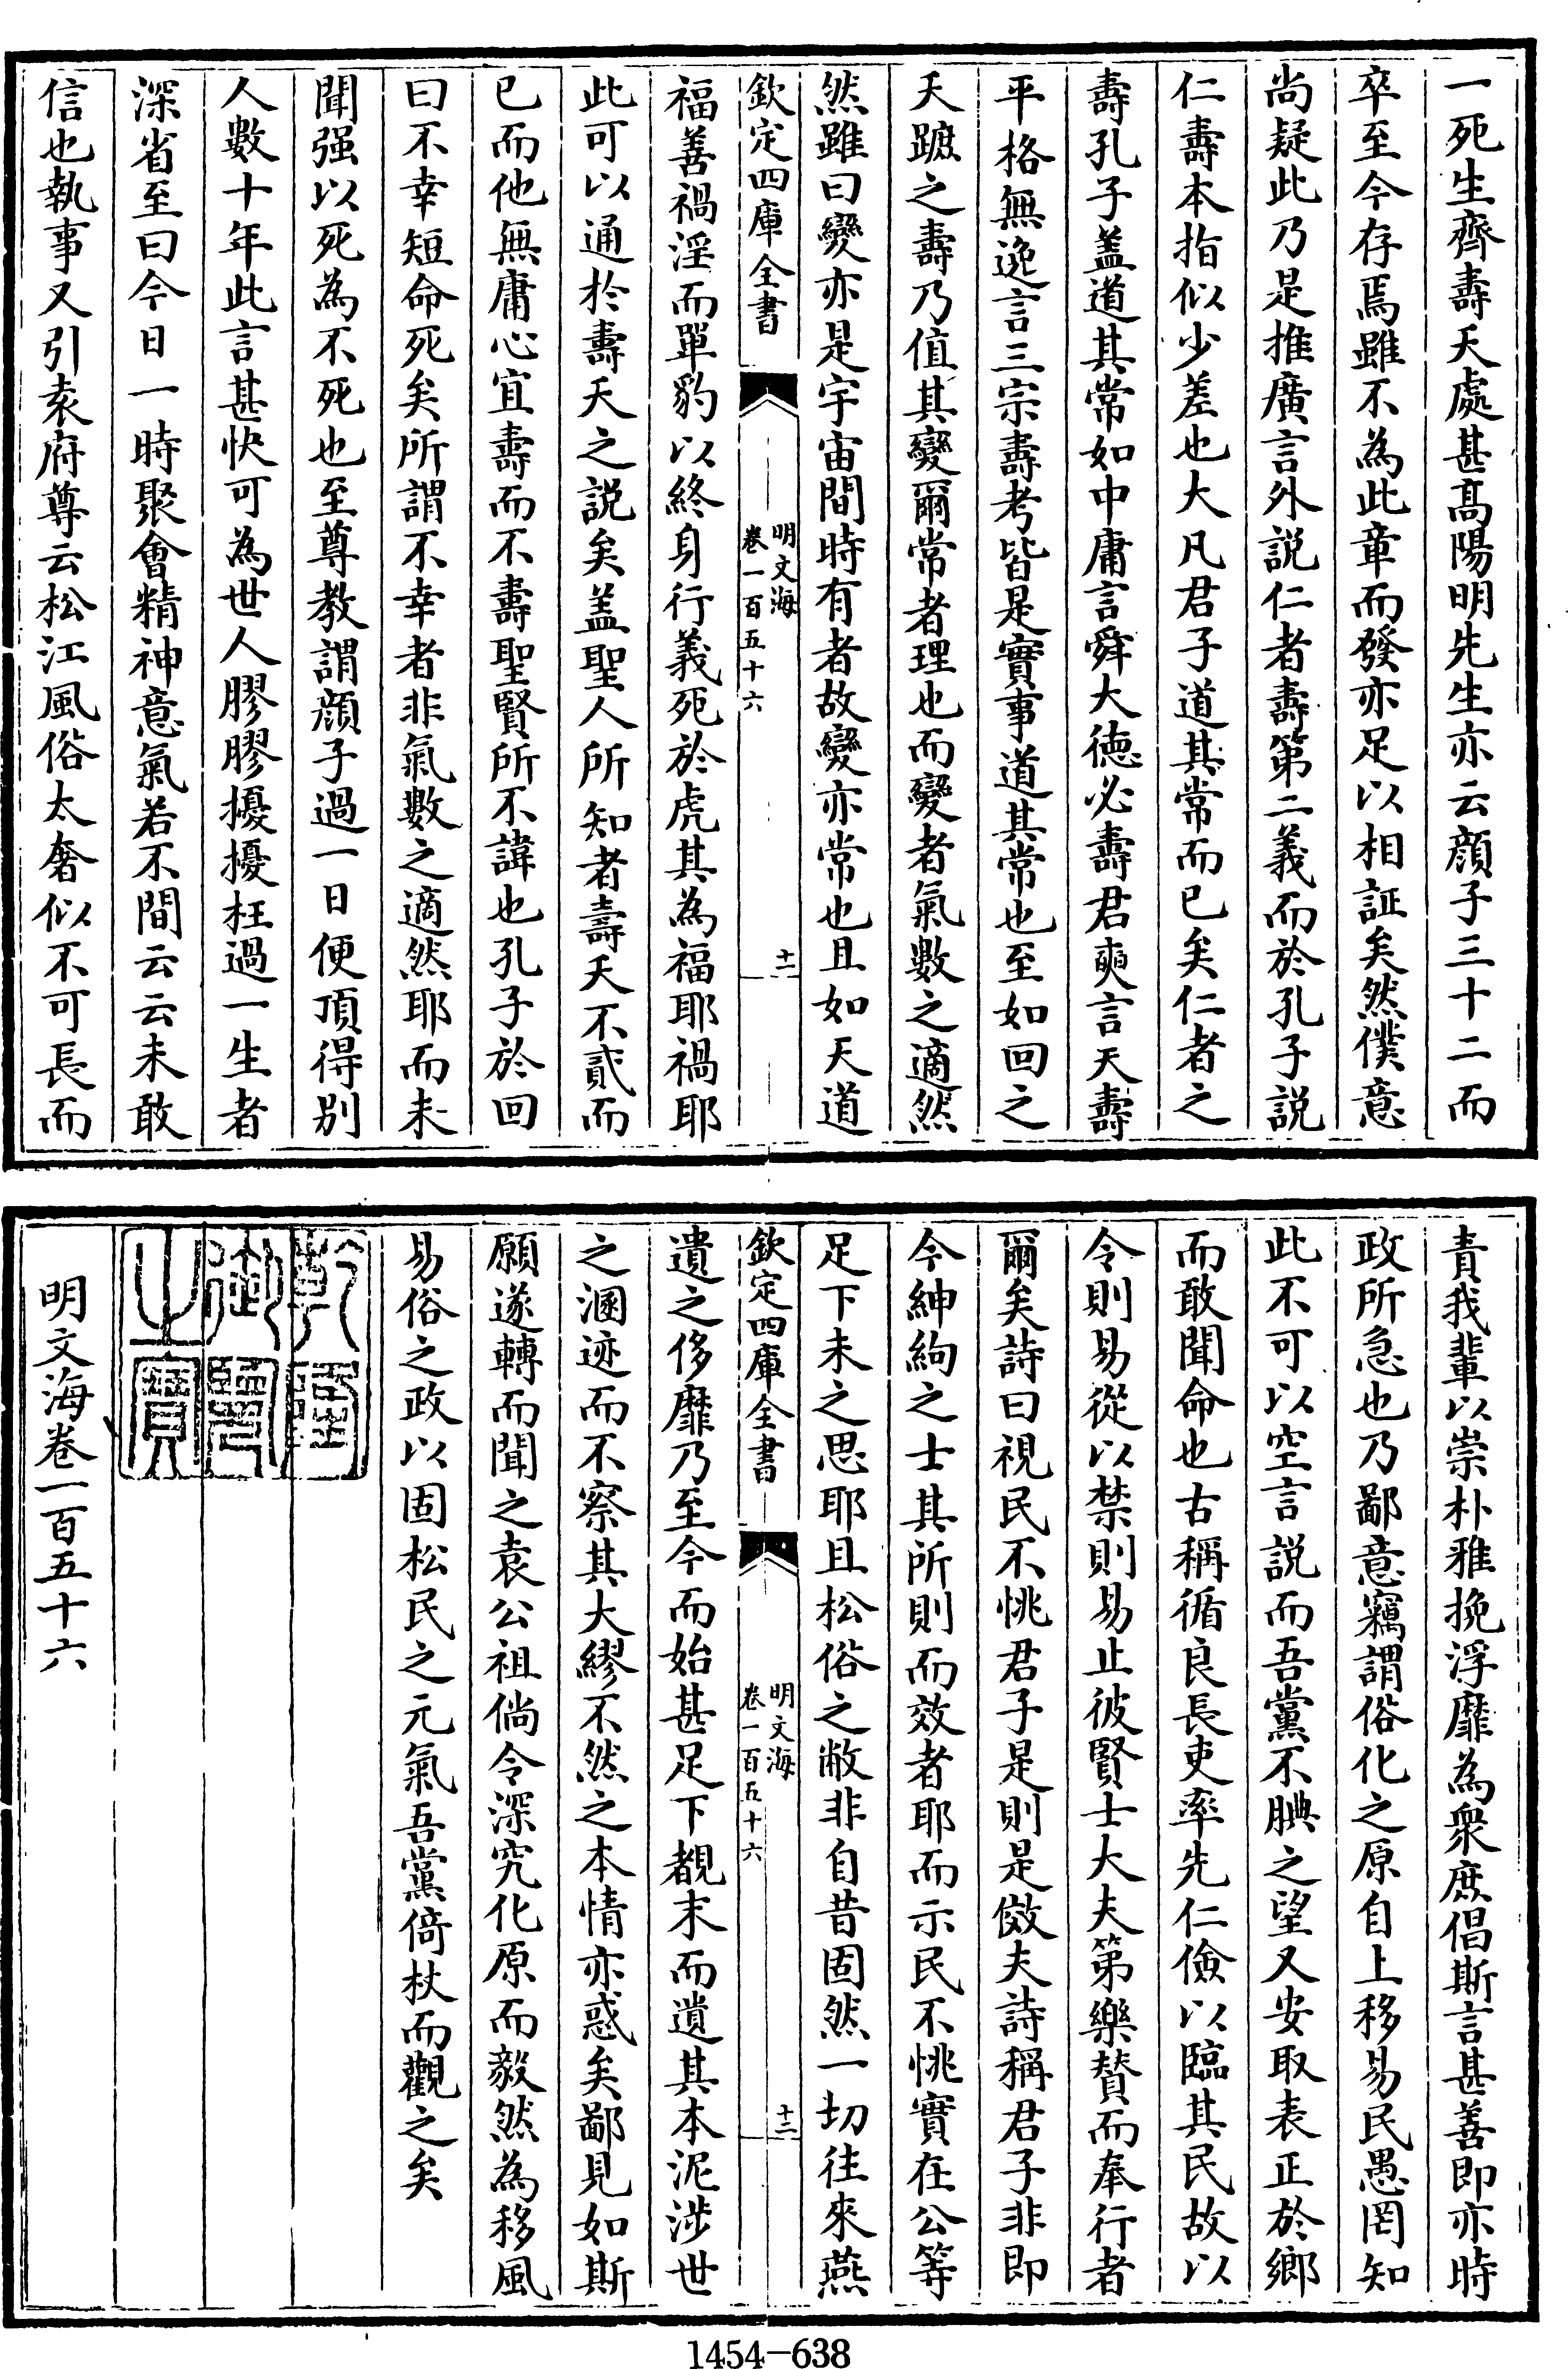 一死生齊壽夭處甚髙陽明先生亦云顔子三十二而
卒至今存焉雖不為此章而發亦足以相証矣然僕意
尚疑此乃是推廣言外説仁者壽第二義而於孔子説
仁壽本指似少差也大凡君子道其常而已矣仁者之
壽孔子盖道其常如中庸言舜大徳必壽君奭言天壽
平格無逸言三宗壽考皆是實事道其常也至如回之
夭蹠之壽乃值其變爾常者理也而變者氣數之適然
然雖曰變亦是宇宙間時有者故變亦常也且如天道
欽定四庫全書
明文海
卷一百五十六
十二
福善禍淫而單豹以終身行義死於虎其為福耶禍耶
此可以通於壽夭之説矣盖聖人所知者壽夭不貳而
已而他無庸心宜壽而不壽聖賢所不諱也孔子於回
曰不幸短命死矣所謂不幸者非氣數之適然耶而未
聞强以死為不死也至尊教謂顔子過一日便頂得别
人數十年此言甚快可為世人膠膠擾擾枉過一生者
深省至曰今日一時聚會精神意氣若不間云云未敢
信也執事又引袁府尊云松江風俗太奢似不可長而
責我輩以崇朴雅挽浮靡為衆庶倡斯言甚善即亦時
政所急也乃鄙意竊謂俗化之原自上移易民愚罔知
此不可以空言説而吾黨不腆之望又安取表正於鄉
而敢聞命也古稱循良長吏率先仁儉以臨其民故以
令則易從以禁則易止彼賢士大夫第樂賛而奉行者
爾矣詩曰視民不恌君子是則是傚夫詩稱君子非即
今紳絇之士其所則而效者耶而示民不恌實在公等
足下未之思耶且松俗之敝非自昔固然一切往來燕
欽定四庫全書
明文海
卷一百五十六
十三
遺之侈靡乃至今而始甚足下覩末而遺其本泥涉世
之溷迹而不察其大繆不然之本情亦惑矣鄙見如斯
願遂轉而聞之袁公祖倘令深究化原而毅然為移風
易俗之政以固松民之元氣吾黨倚杖而觀之矣
乾隆
御覽
之寳
明文海卷一百五十六
1454-638